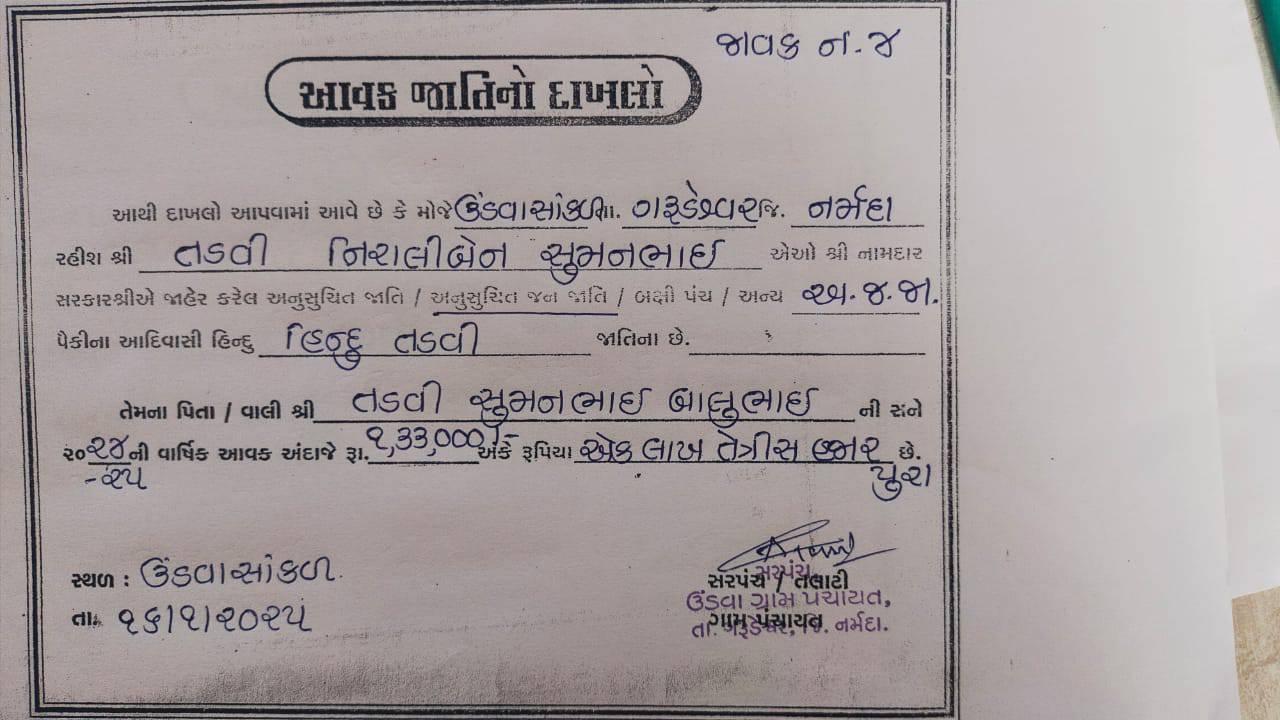 જાવક ન.૪
આવક જાતિનો દાખલો
આથી દાખલો આપવામાં આવે છે કે મોજે ઉંડવાસાંકળ તા. ગરૂડેશ્વર જિ. નર્મદા
રહીશ શ્રી તડવી નિરાલીબેન સુમનભાઈ એઓ શ્રી નામદાર
સરકારશ્રીએ જાહેર કરેલ અનુસુચિત જાતિ / અનુસુચિત જન જાતિ / બક્ષી પંચ / અન્ય અ.જ.જા.
પૈકીના આદિવાસી હિન્દુ હિન્દુ તડવી જાતિના છે.
તેમના પિતા / વાલી શ્રી તડવી સુમનભાઈ બાલુભાઈ ની સને
૨૦૨૪ ની વાર્ષિક આવક અંદાજે રૂા. ૧,૩૩,૦૦૦/- અંકે રૂપિયા એક લાખ તેત્રીસ હજાર છે.
-૨૫ પુરા
સ્થળ : ઉંડવાસાંકળ.
તા. ૧૬/૧/૨૦૨૫
સરપંચ / તલાટી
સરપંચ
ઉંડવા ગ્રામ પંચાયત,
ગામ પંચાયત
તા. ગરૂડેશ્વર, જિ. નર્મદા.